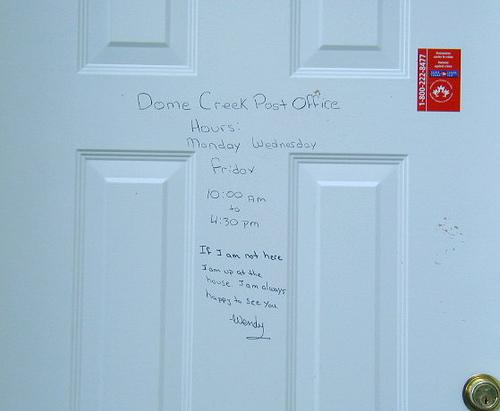 Dome Creek Post Office
Hours:
Monday Wednesday
Friday
10:00 Am
to
4:30 pm
If I am not here
I am up at the
house. I am always
happy to see you
-Wendy
1-800-222-8477